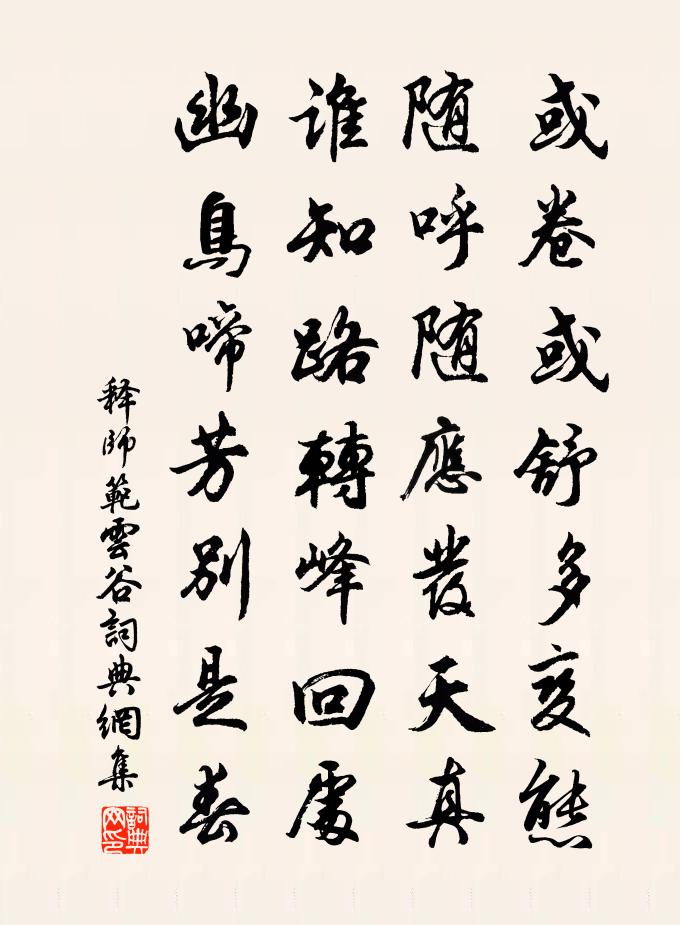 或卷或舒多变態
随呼随應發天真
谁知路轉峰回處
幽鳥啼芳别是春
释師範雲谷詞典網集
詞典網印